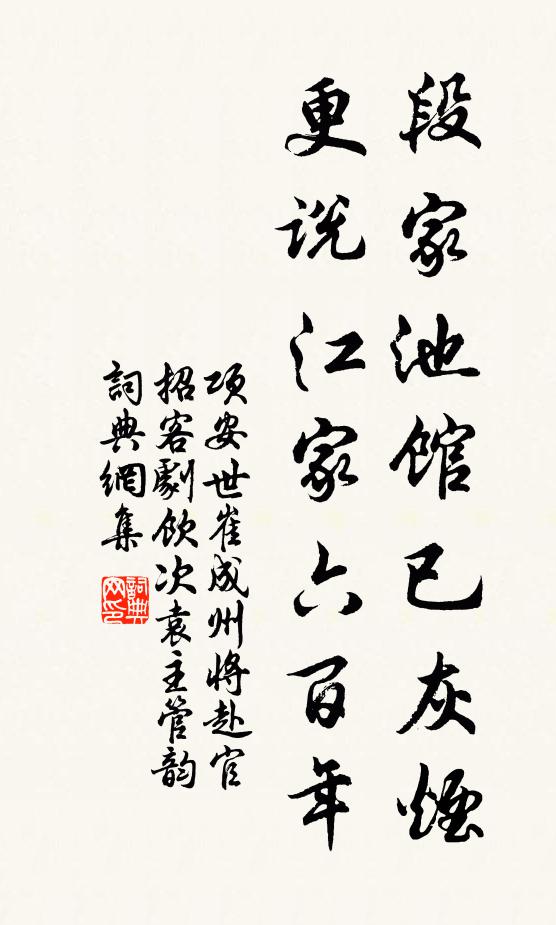 段家池馆已灰煙
更说江家六百年
项安世崔成州將赴官
招客劇飲次袁主管韵
詞典網集
詞典网印